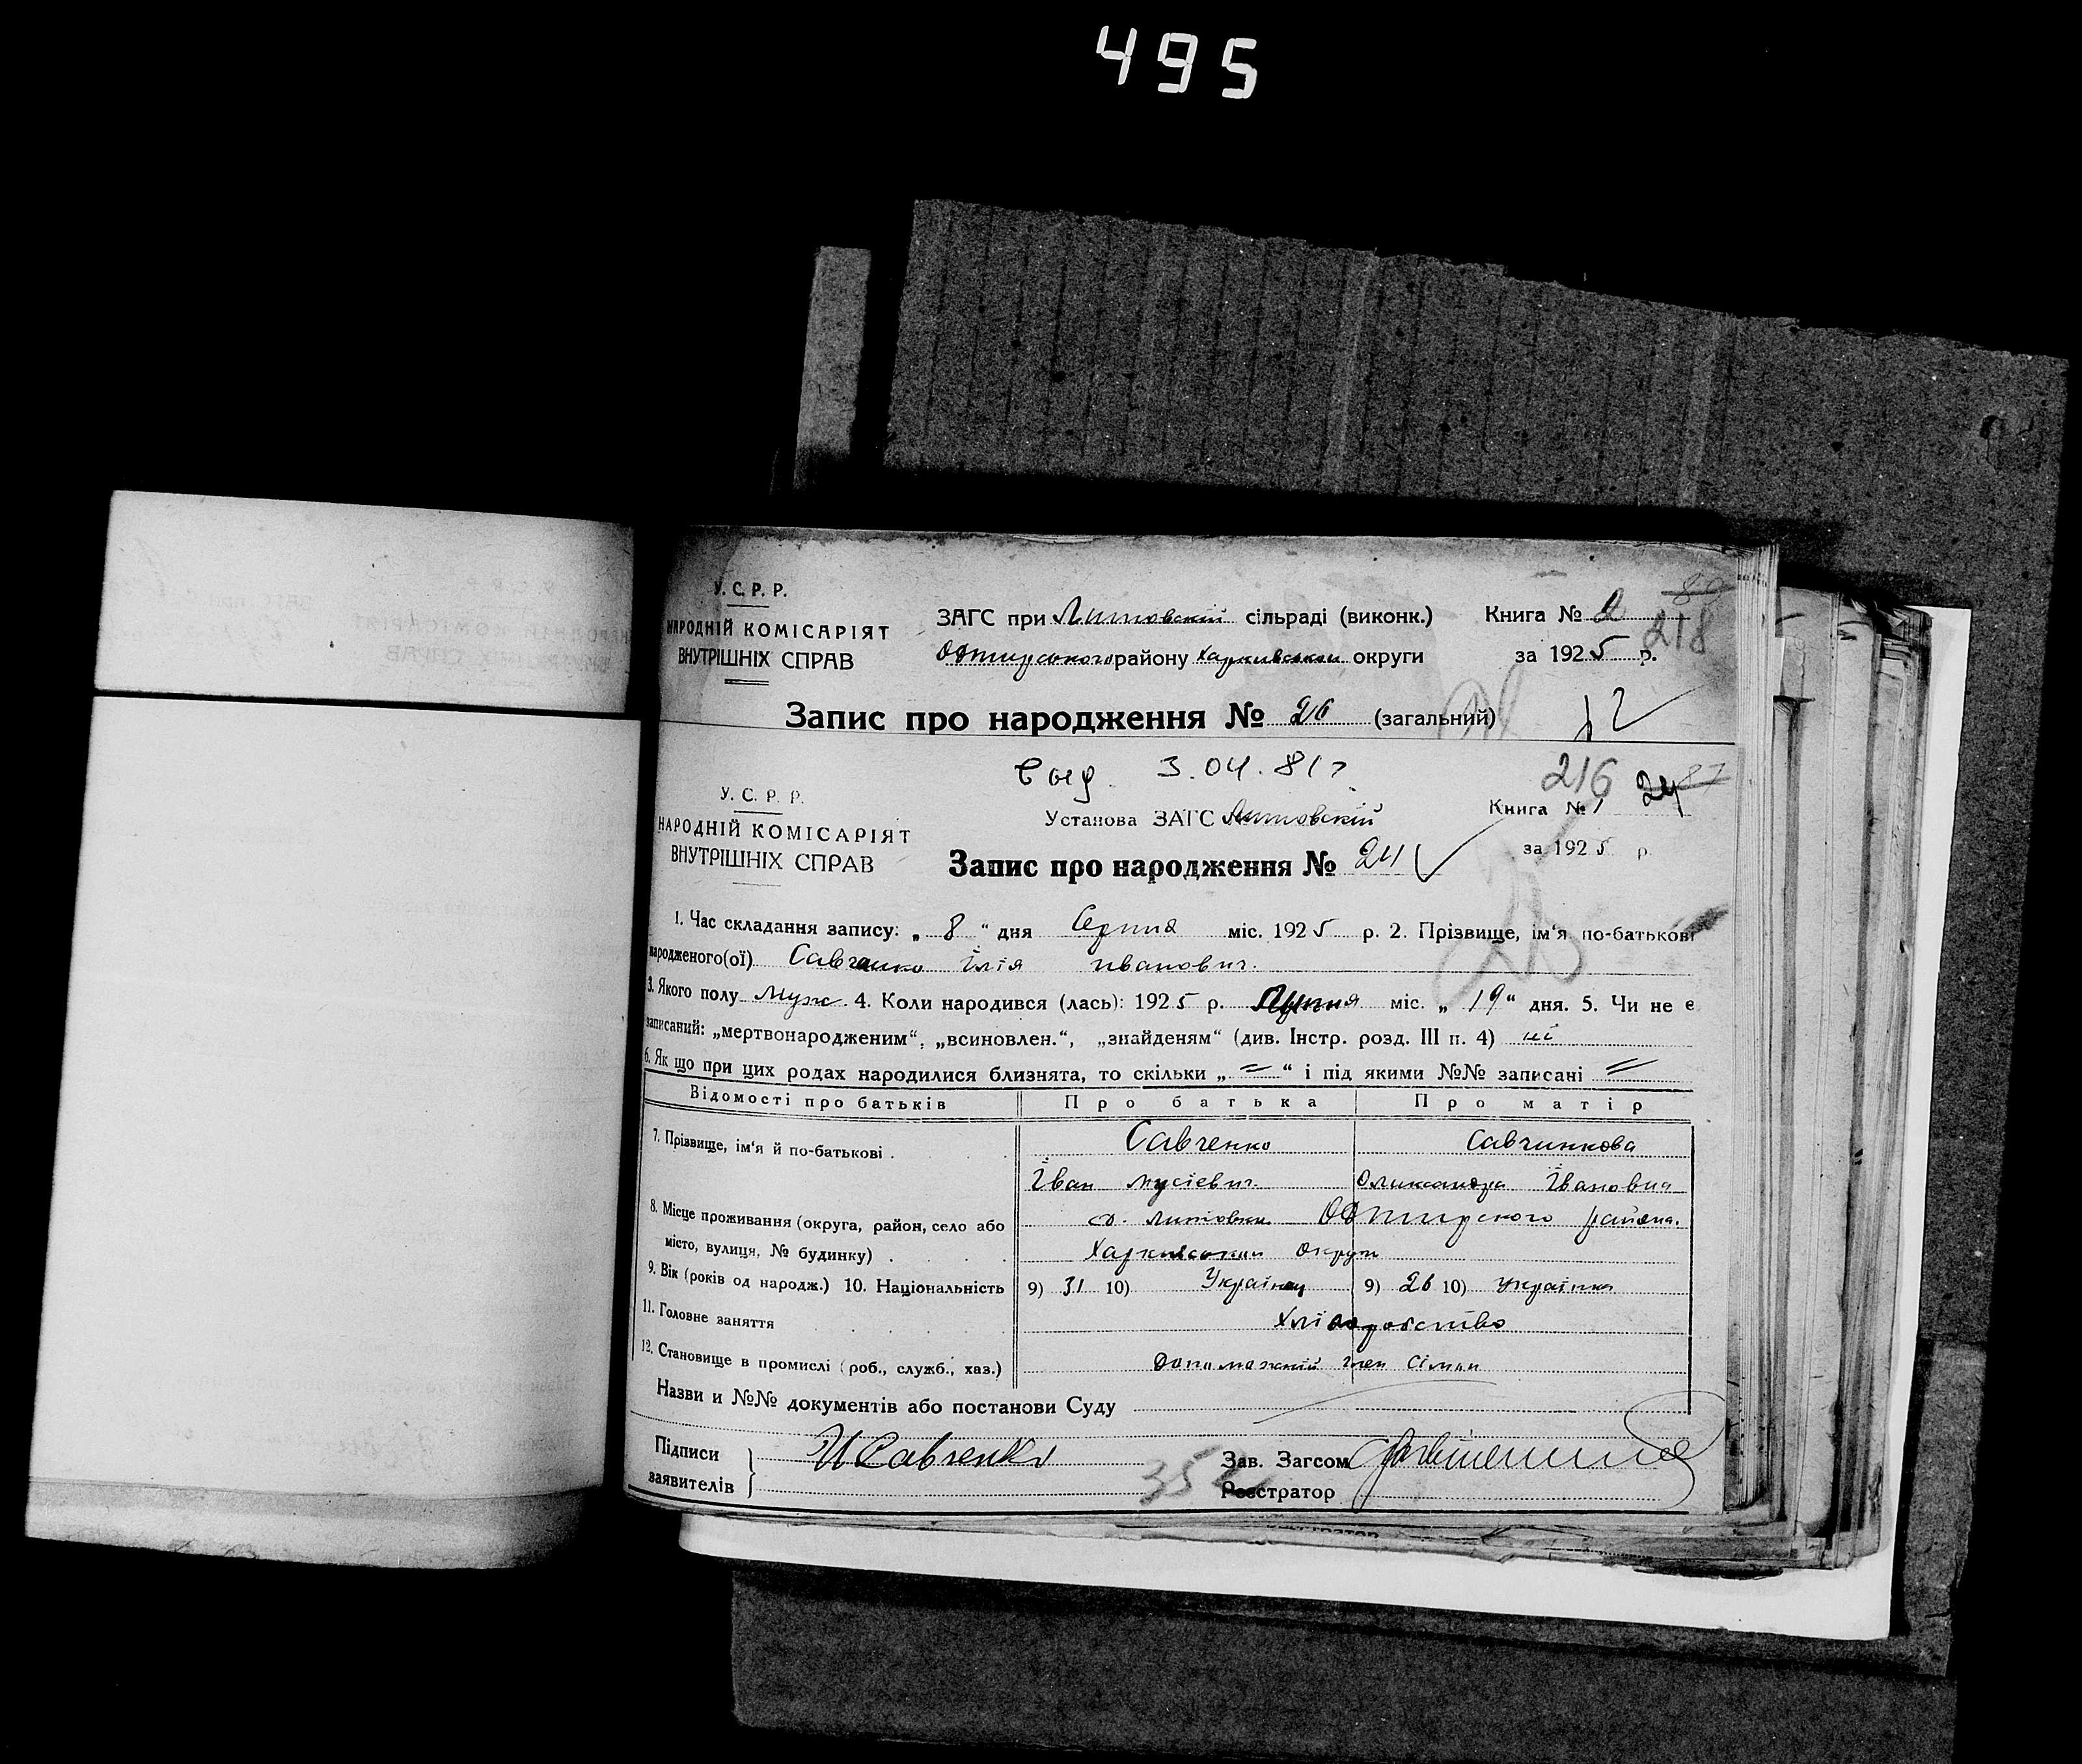 495
У. С. Р. Р.
НАРОДНІЙ КОМІСАРІЯТ
ВНУТРІШНІХ СПРАВ
ЗАГС при Литовскій сільраді (виконк.) Книга №
району Харкивськои округи за 1925 р. 218
Запис про народження № 26 (загальний)
3.04.81г.
216 24 87
У. С. Р. Р.
НАРОДНІЙ КОМІСАРІЯТ
ВНУТРІШНІХ СПРАВ
Установа ЗАГС Литовскій Книга № 1
Запис про народження № 24 за 1925 р.
1. Час складання запису: „ 8 “ дня Серпня міс. 1925 р. 2. Прізвище, ім‘я по-батькові
народженого(ої) Савченко Ілія Иванович.
3. Якого полу муж. 4. Коли народився (лась): 1925 р. міс. „ 19 “ дня. 5. Чи не є
записаний: „мертвонародженим“, „всиновлен.“, „знайденям“ (див. Інстр. розд. III п. 4) ні
6. Як що при цих родах народилися близнята, то скільки „ = “ і під якими №№ записані =
Відомості про батьків Про батька Про матір
7. Прізвище, ім‘я й по-батькові . Савченко Савчинкова
Їван Мусіевич Олександра Ївановна
8. Місце проживання (округа, район, село або с. Литовки района.
місто, вулиця, № будинку) . Харкивськои округи
9. Вік (років од народж.) 10. Національність 9) 31 10) Українец 9) 26 10) Українка
11. Головне заняття Хліборобство
12. Становище в промислі (роб., служб., хаз.) допоможній член сімьи
Назви и №№ документів або постанови Суду
Підписи
заявителів И Савченко
352
Зав. Загсом
Реєстратор